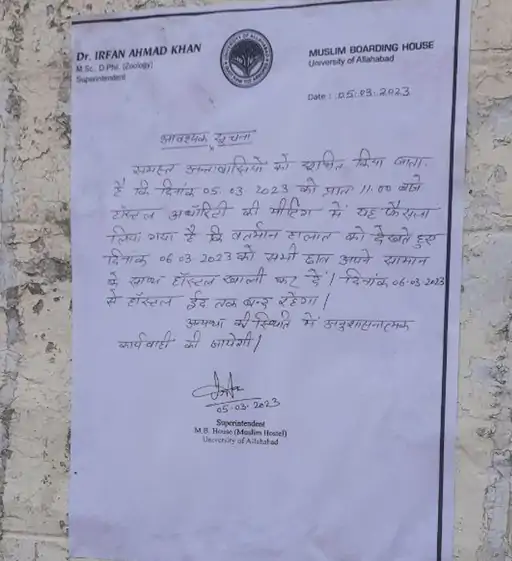 Dr. IRFAN AHMAD KHAN
M.Sc. D.Phil. (Zoology)
Superintendent
MUSLIM BOARDING HOUSE
University of Allahabad
Date: 05.03.2023
आवश्यक सूचना
समस्त अन्तःवासियों को सूचित किया जाता
है कि दिनांक 05.03.2023 को प्रातः 11.00 बजे
हॉस्टल अथॉरिटी की मीटिंग में यह फैसला
लिया गया है कि वर्तमान हालात को देखते हुए
दिनांक 06.03.2023 को सभी छात्र अपने सामान
के साथ हॉस्टल खाली कर दें। दिनांक 06.03.2023
से हॉस्टल ईद तक बन्द रहेगा।
अन्यथा की स्थिति में अनुशासनात्मक
कार्यवाही की जायेगी।
05.03.2023
Superintendent
M.B. House (Muslim Hostel)
University of Allahabad